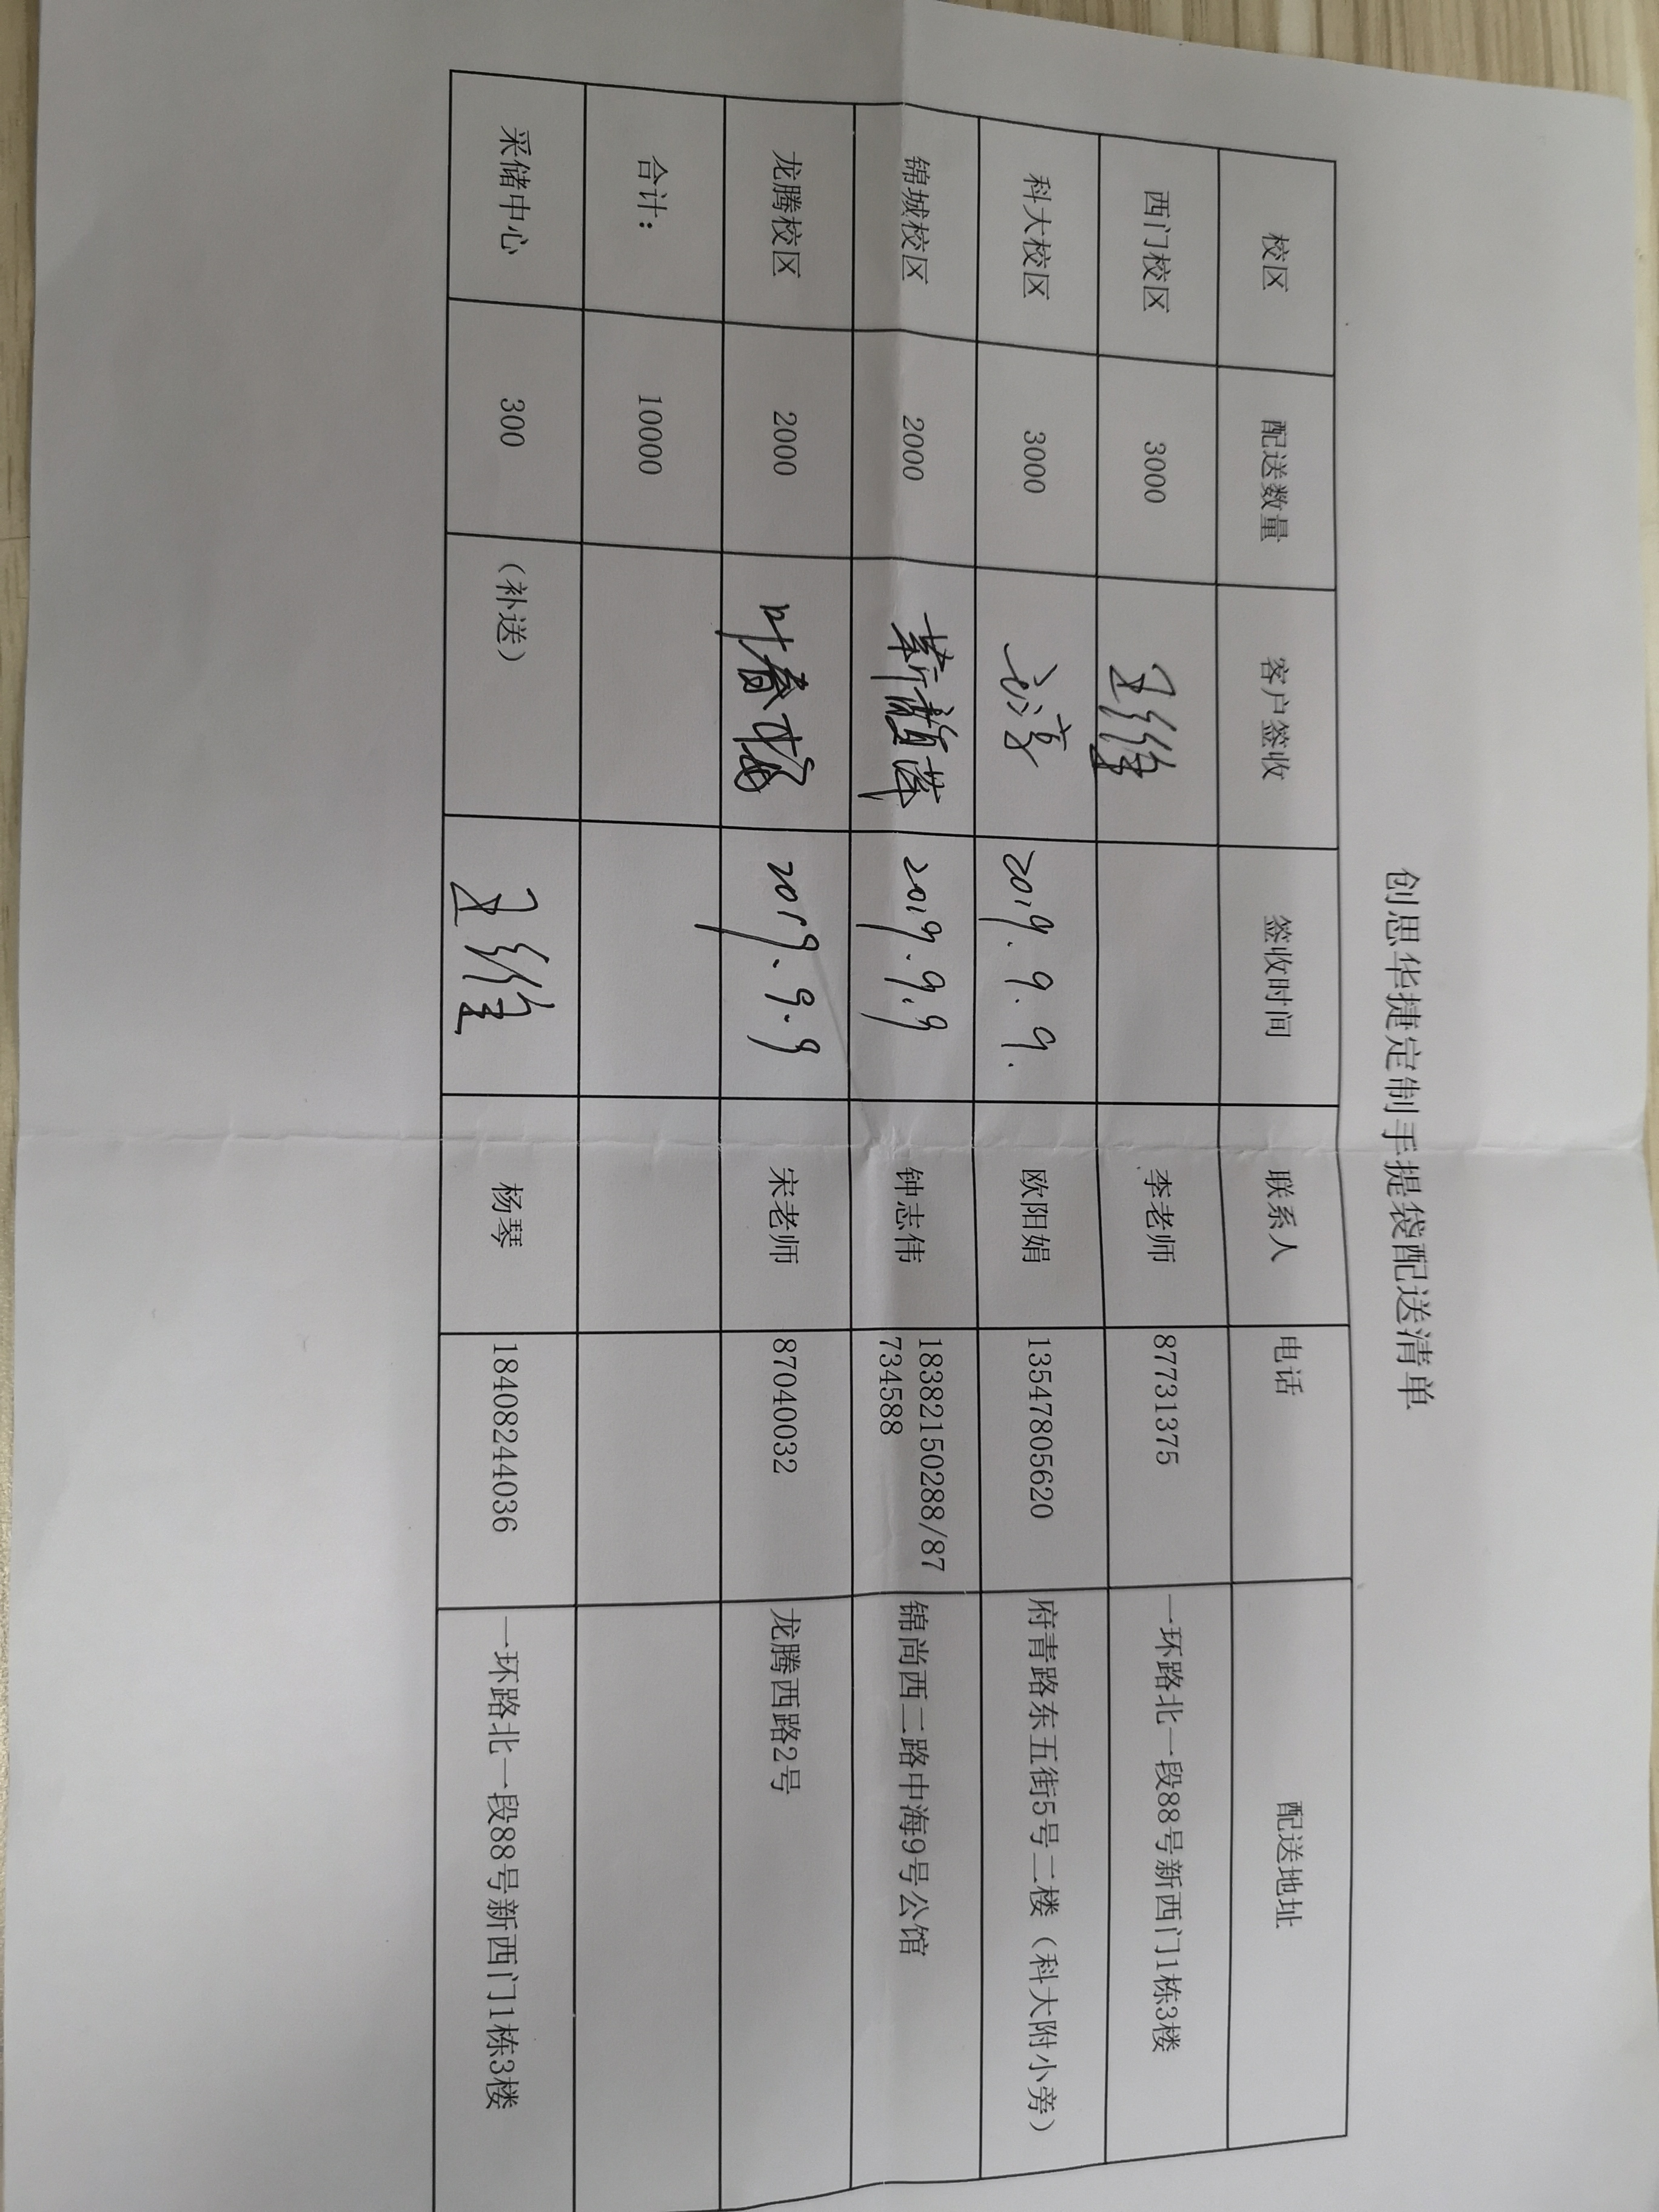 创思华捷定制手提袋配送清单
校区 配送数量 客户签收 签收时间 联系人 电话 配送地址
西门校区 3000 王维 李老师 87731375 一环路北一段88号新西门1栋3楼
科大校区 3000 2019.9.9. 欧阳娟 13547805620 府青路东五街5号二楼（科大附小旁）
锦城校区 2000 2019.9.9 钟志伟 18382150288/87
734588 锦尚西二路中海9号公馆
龙腾校区 2000 叶春梅 2019.9.9 宋老师 87040032 龙腾西路2号
合计： 10000
采储中心 300 （补送） 王维 杨琴 18408244036 一环路北一段88号新西门1栋3楼